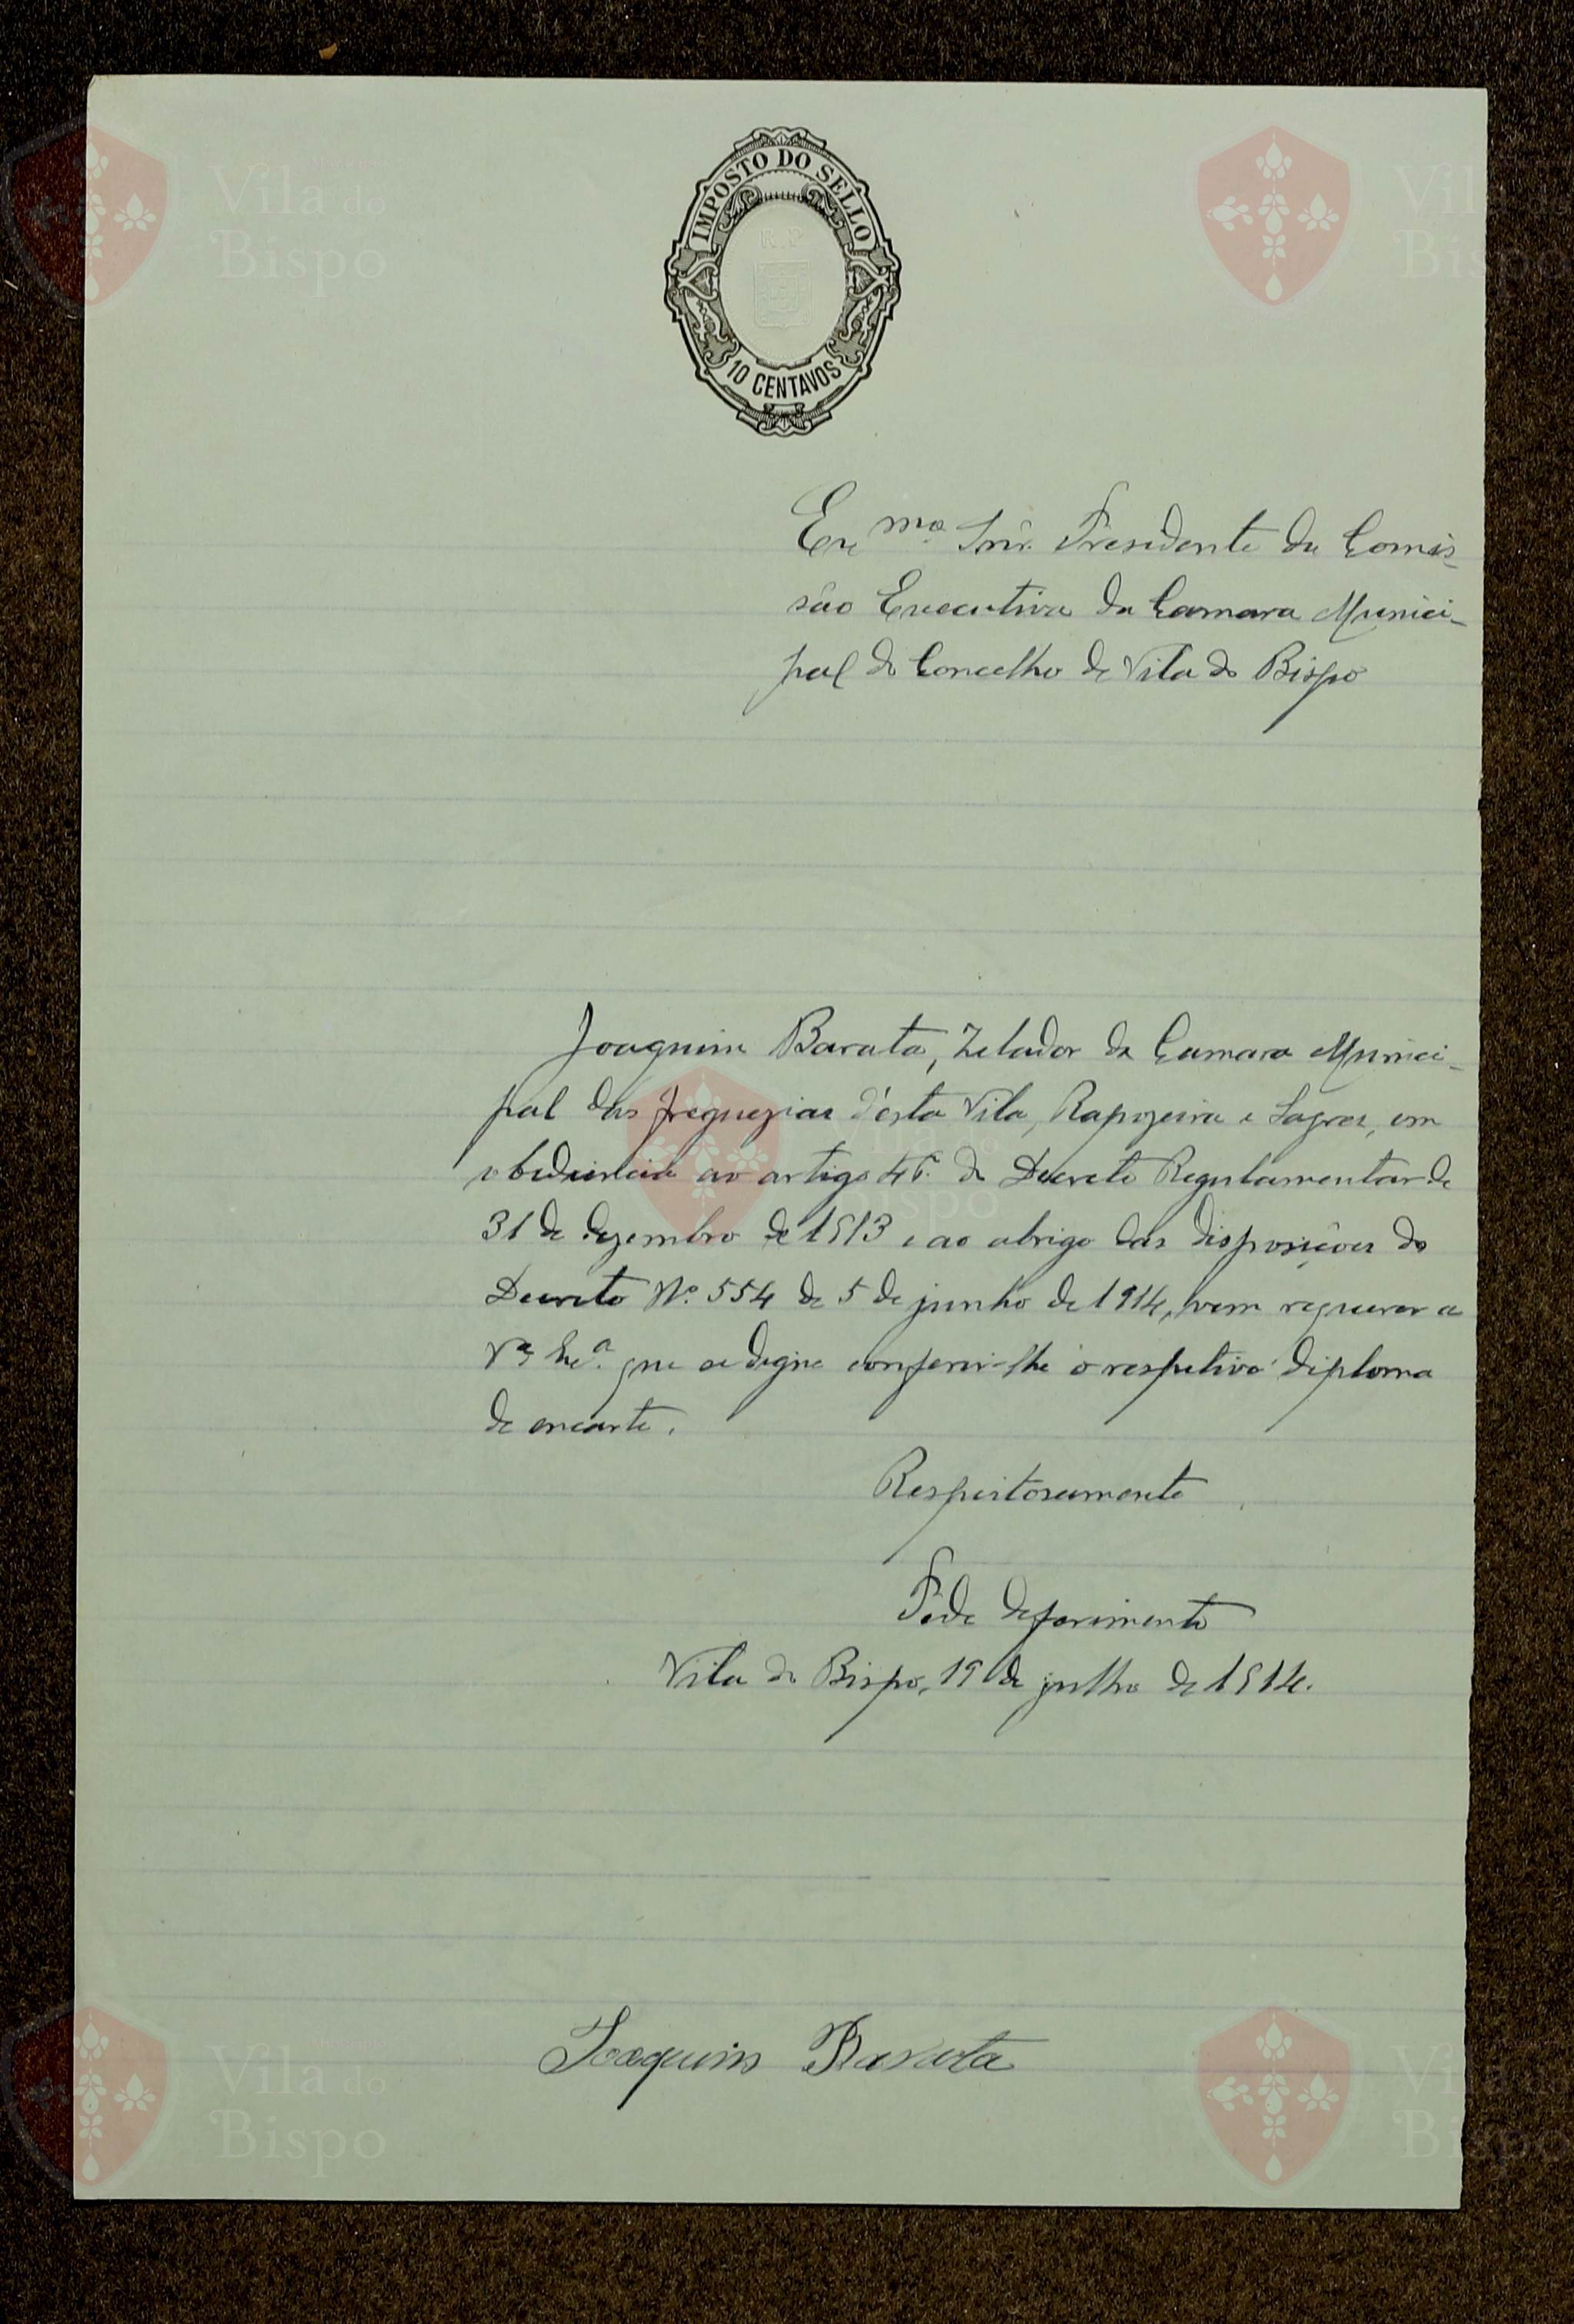 IMPOSTO DO SELLO
R. P
10 CENTAVOS
Vila do
Bispo
Exmo Snr. Presidente da Comis-
são Executiva da Camara Munici-
pal do Concelho de Vila do Bispo
Joaquim Barata, Zelador da Camara Munici-
pal das freguezias d'esta Vila, Rapozeira e Sagres, em
obediencia ao artigo do Decreto Regulamentar de
31 de dezembro de 1913 e ao abrigo das disposições do
Decreto Nº. 554 de 5 de junho de 1914, vem requerer a
Vª Exª. que se digne conferir-lhe o respetivo diploma
de encarte.
Respeitosamente
Pede deferimento
Vila do Bispo, 19 de julho de 1914.
Joaquim Barata